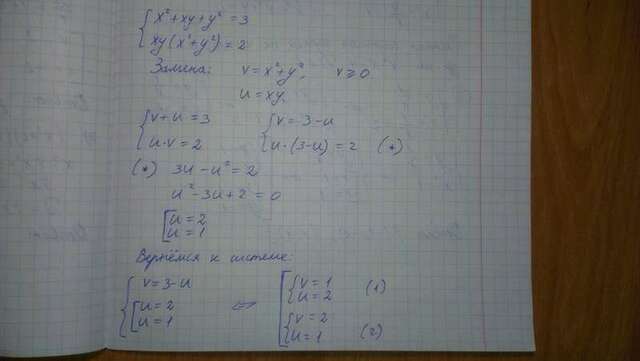 { x² + xy + y² = 3
xy(x² + y²) = 2
Замена: v = x² + y², v ⩾ 0
u = xy.
{ v + u = 3 { v = 3 - u
u·v = 2 u·(3-u) = 2 (*)
(*) 3u - u² = 2
u² - 3u + 2 = 0
[ u = 2
u = 1
Вернёмся к системе:
{ v = 3 - u ⇔ [ { v = 1 (1)
[ u = 2 u = 2
u = 1 { v = 2 (2)
u = 1